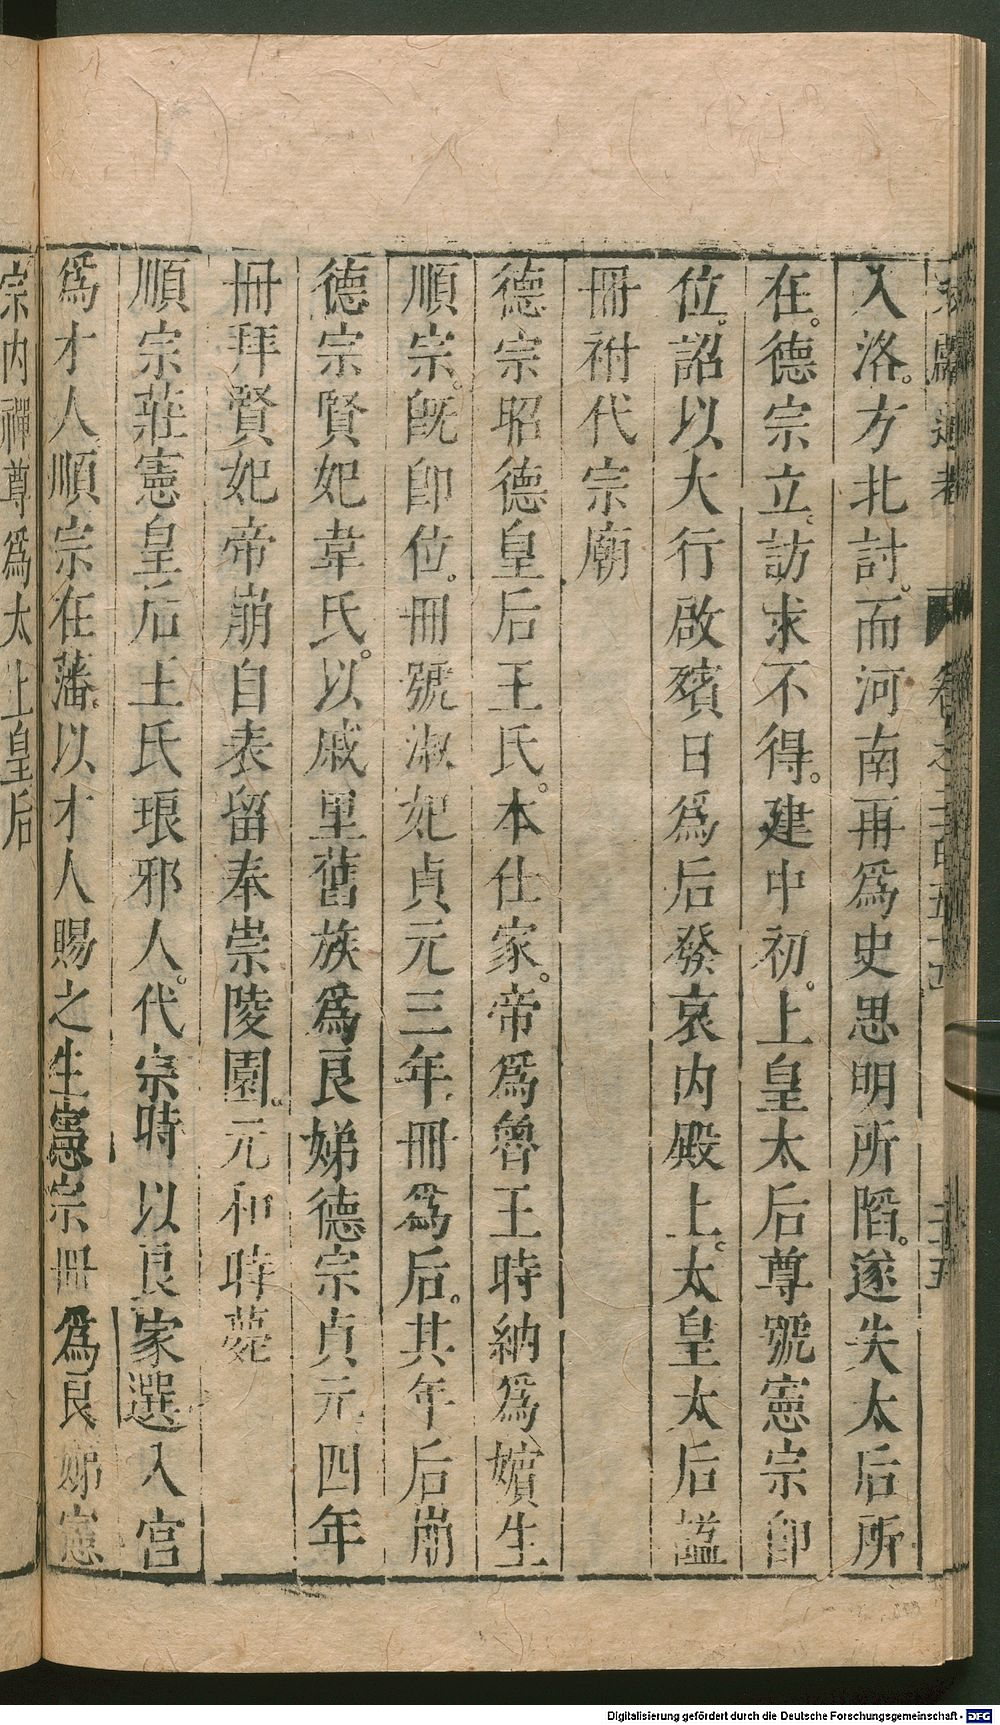 入洛。方北討。而河南再爲史思明所䧟。遂失太后所
在。德宗立。訪求不得。建中初。上皇太后尊號憲宗卽
位。詔以大行啟殯日爲后發哀内殿上。太皇太后謚
冊祔代宗廟
德宗昭德皇后王氏。本仕家。帝爲魯王時納爲嬪生
順宗。旣卽位。冊號淑妃貞元三年。冊爲后。其年后崩
德宗賢妃韋氏。以戚里舊族爲良娣德宗貞元四年
冊拜賢妃帝崩自表留奉崇陵園。元和時薨
順宗莊憲皇后王氏琅邪人。代宗時以良家選入宫
爲才人順宗在藩。以才人賜之生憲宗冊爲良娣憲
宗内禪尊爲太上皇后
文獻通考 卷之二百五十五 二十五
Digitalisierung gefördert durch die Deutsche Forschungsgemeinschaft - DFG